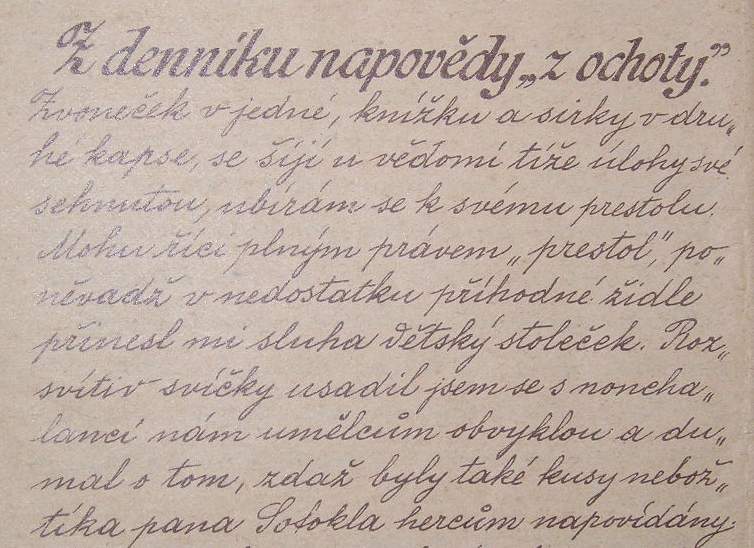 Z denníku napovědy „z ochoty.”
Zvoneček v jedné, knížku a sirky v dru„
hé kapse, se šíjí u vědomí tíže úlohy své
sehnutou, ubírám se k svému prestolu.
Mohu říci plným právem „prestol”, po„
něvadž v nedostatku příhodné židle
přinesl mi sluha dětský stoleček. Roz„
svítiv svíčky usadil jsem se s noncha„
lancí nám umělcům obvyklou a du„
mal o tom, zdaž byly také kusy nebož„
tíka pana Sofokla hercům napovídány.